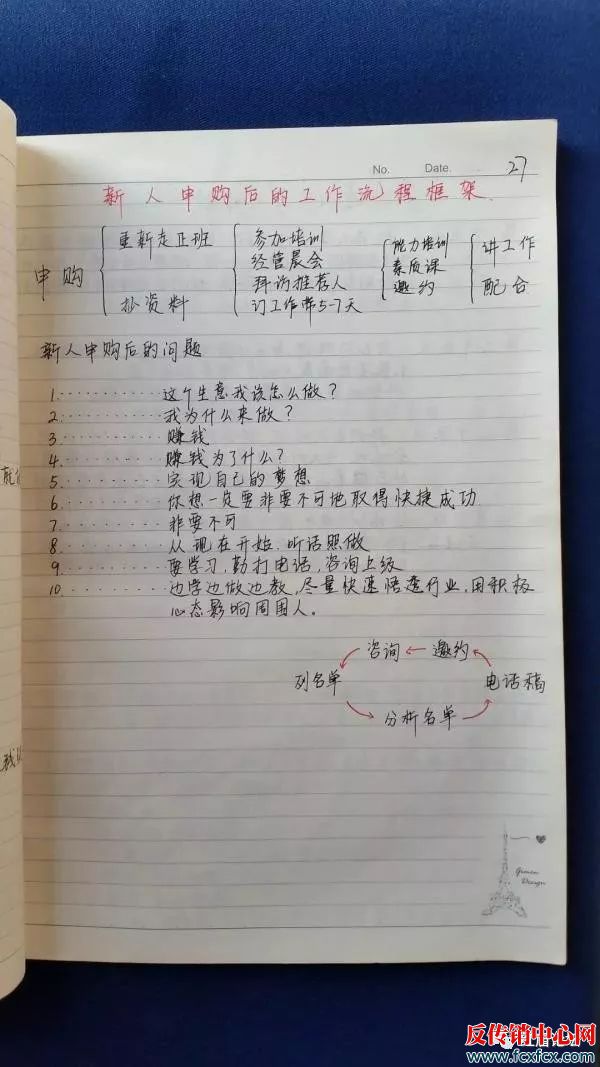 No. Date. 27
新人申购后的工作流程框架
申购
重新走正班
抄资料
参加培训
经管晨会
拜访推荐人
订工作带5-7天
能力培训
素质课
邀约
讲工作
配合
新人申购后的问题
1.··········这个生意我该怎么做?
2.··········我为什么来做?
3.··········赚钱
4.··········赚钱为了什么?
5.··········实现自己的梦想
6.··········你想一定要非要不可地取得快捷成功
7.··········非要不可
8.··········从现在开始.听话照做
9.··········要学习,勤打电话,咨询上级
10.··········边学边做边教,尽量快速悟透行业,用积极
心态影响周围人。
咨询 ← 邀约
列名单 电话稿
分析名单
Design
反传销中心网
www.fcxfcx.com